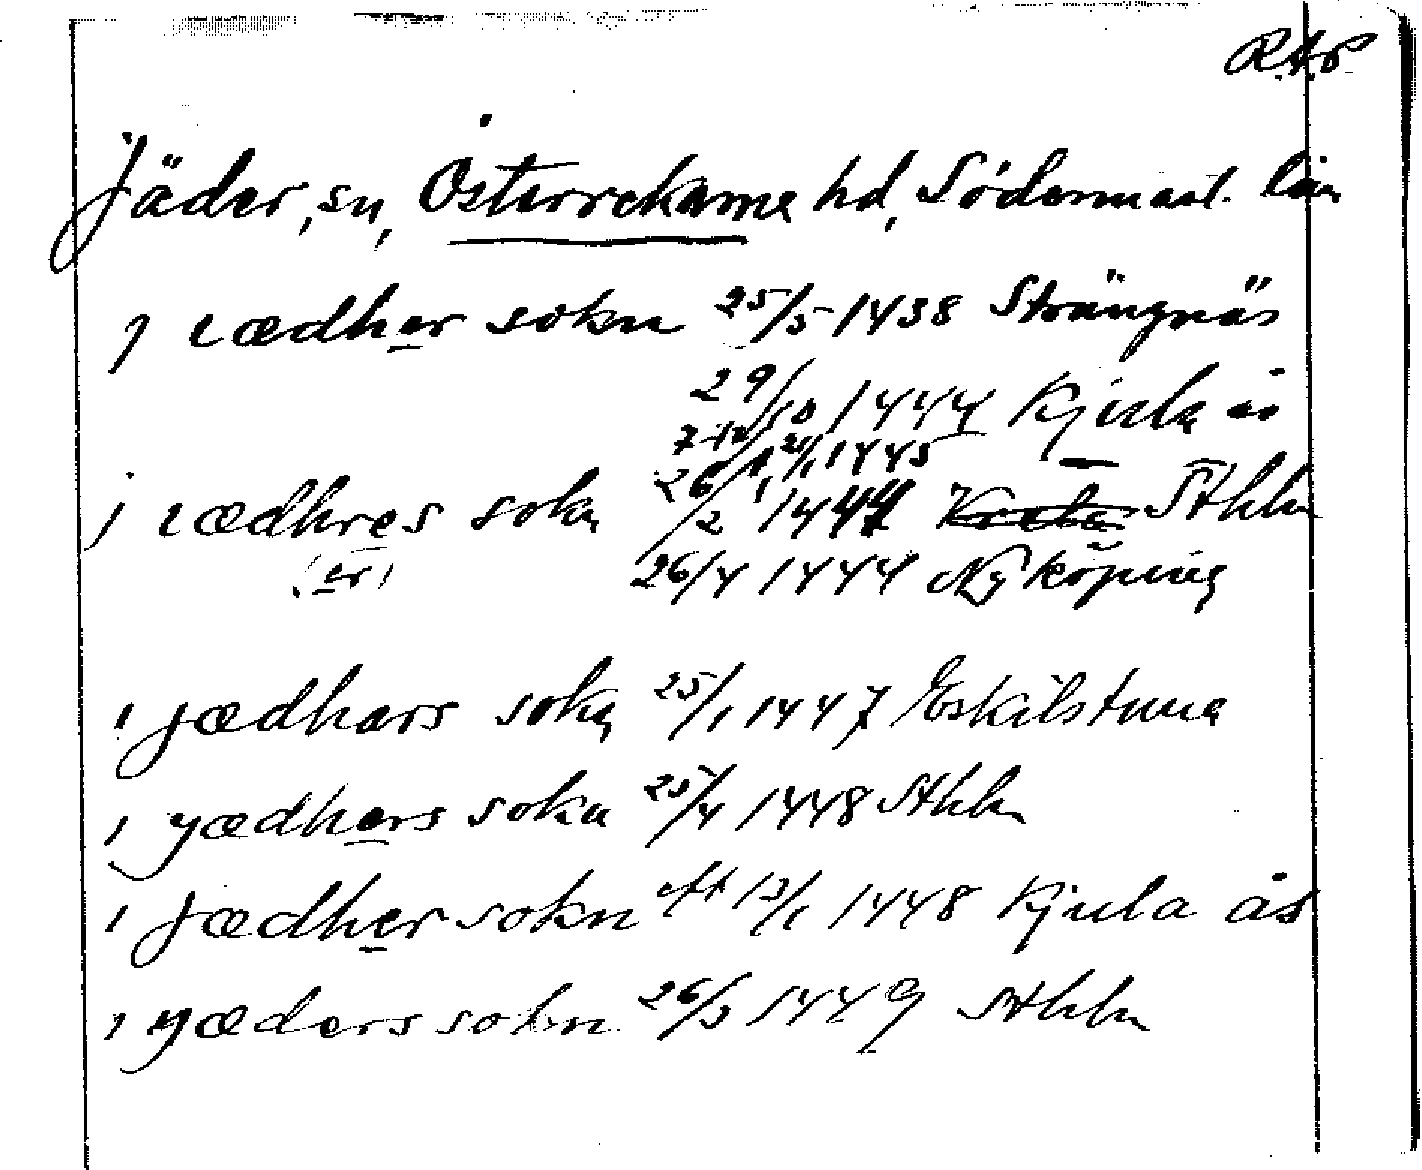 RAP
Jäder, sn, Österrekarne hd, Södermanl. län
J iædher sokn 25/5 1438 Strängnäs
29/10 1444 Kjula ås
21/1 1445
j iædhres sokn 26/2 1444 Sthlm
(er) 26/4 1444 Nyköping
i jædhars sokn 25/1 1447 Eskilstuna
i yædhers sokn 25/4 1448 Sthlm
i jædher sokn eft 13/1 1448 Kjula ås
i yæders sokn 26/3 1449 Sthlm